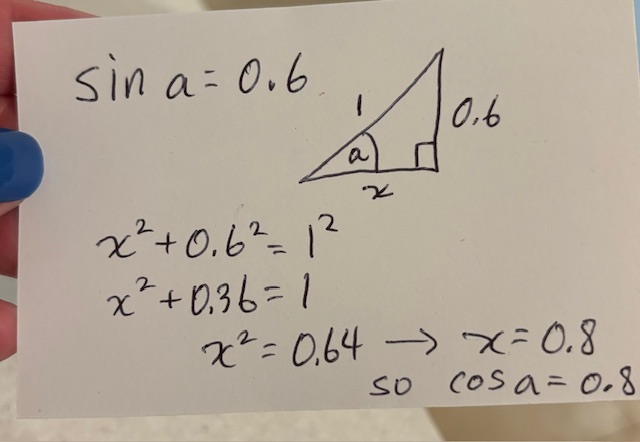 sin a = 0.6
1
0.6
a
x
x² + 0.6² = 1²
x² + 0.36 = 1
x² = 0.64 → x = 0.8
so cos a = 0.8